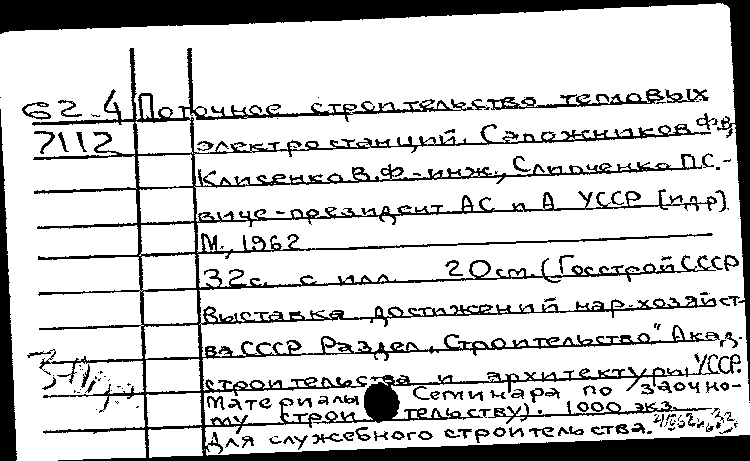 62-4 Поточное строительство тепловых
7112 электростанций. Сапожников Ф.В,
Клисенко В.Ф.-инж., Слипченко П.С.-
вице-президент АС и А УССР [и др]
М., 1962
32с. с илл. 20см. (Госстрой СССР
Выставка достижений нар.хозяйст-
ва СССР Раздел „Строительство" Акад.
строительства и архитектуры УССР.
Материалы Семинара по заочно-
му строительству). 1000 экз.
Для служебного строительства.